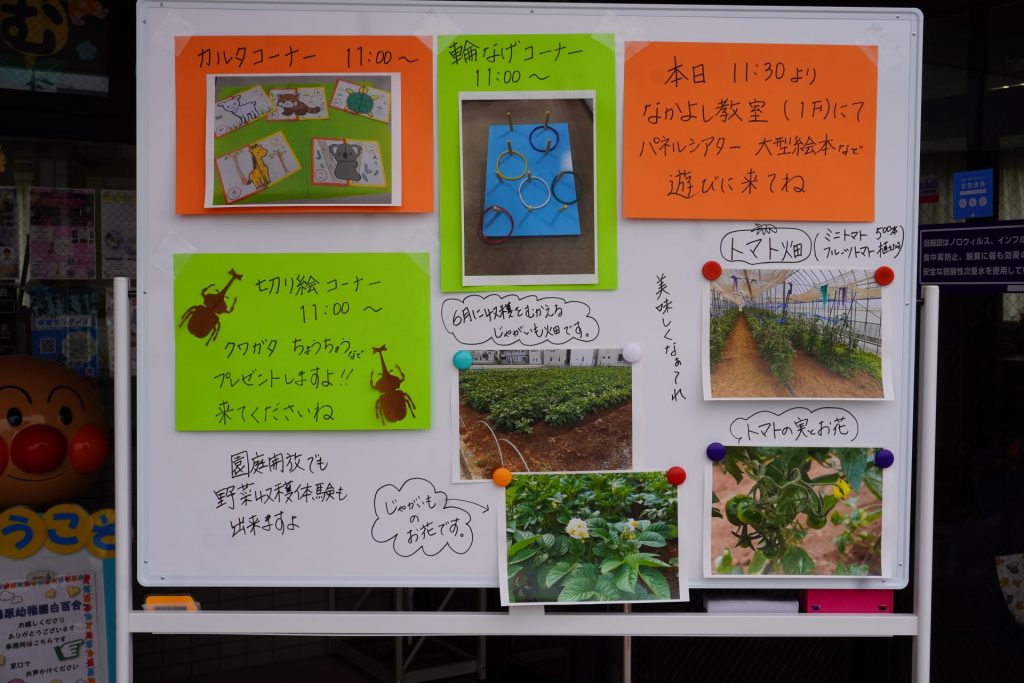 カルタコーナー 11:00〜
輪なげコーナー
11:00〜
本日 11:30より
なかよし教室(1F)にて
パネルシアター 大型絵本など
遊びに来てね
切り絵コーナー
11:00 〜
クワガタ ちょうちょうなど
プレゼントしますよ!!
来てくださいね
園庭開放でも
野菜収穫体験も
出来ますよ
6月に収穫をむかえる
じゃがいも畑です。
じゃがいも
の
お花です。
美味しくなぁてれ
トマト畑
ミニトマト 500本
フルーツトマト
トマトの実とお花
む
うこそ
幼稚園白百合
お越しくださり
ありがとうございます
事務所はこちらです
窓口で
お声かけください
空気清浄
当施設はノロウィルス、インフル
食中毒防止、脱臭に最も効果の
安全な弱酸性次亜水を使用して